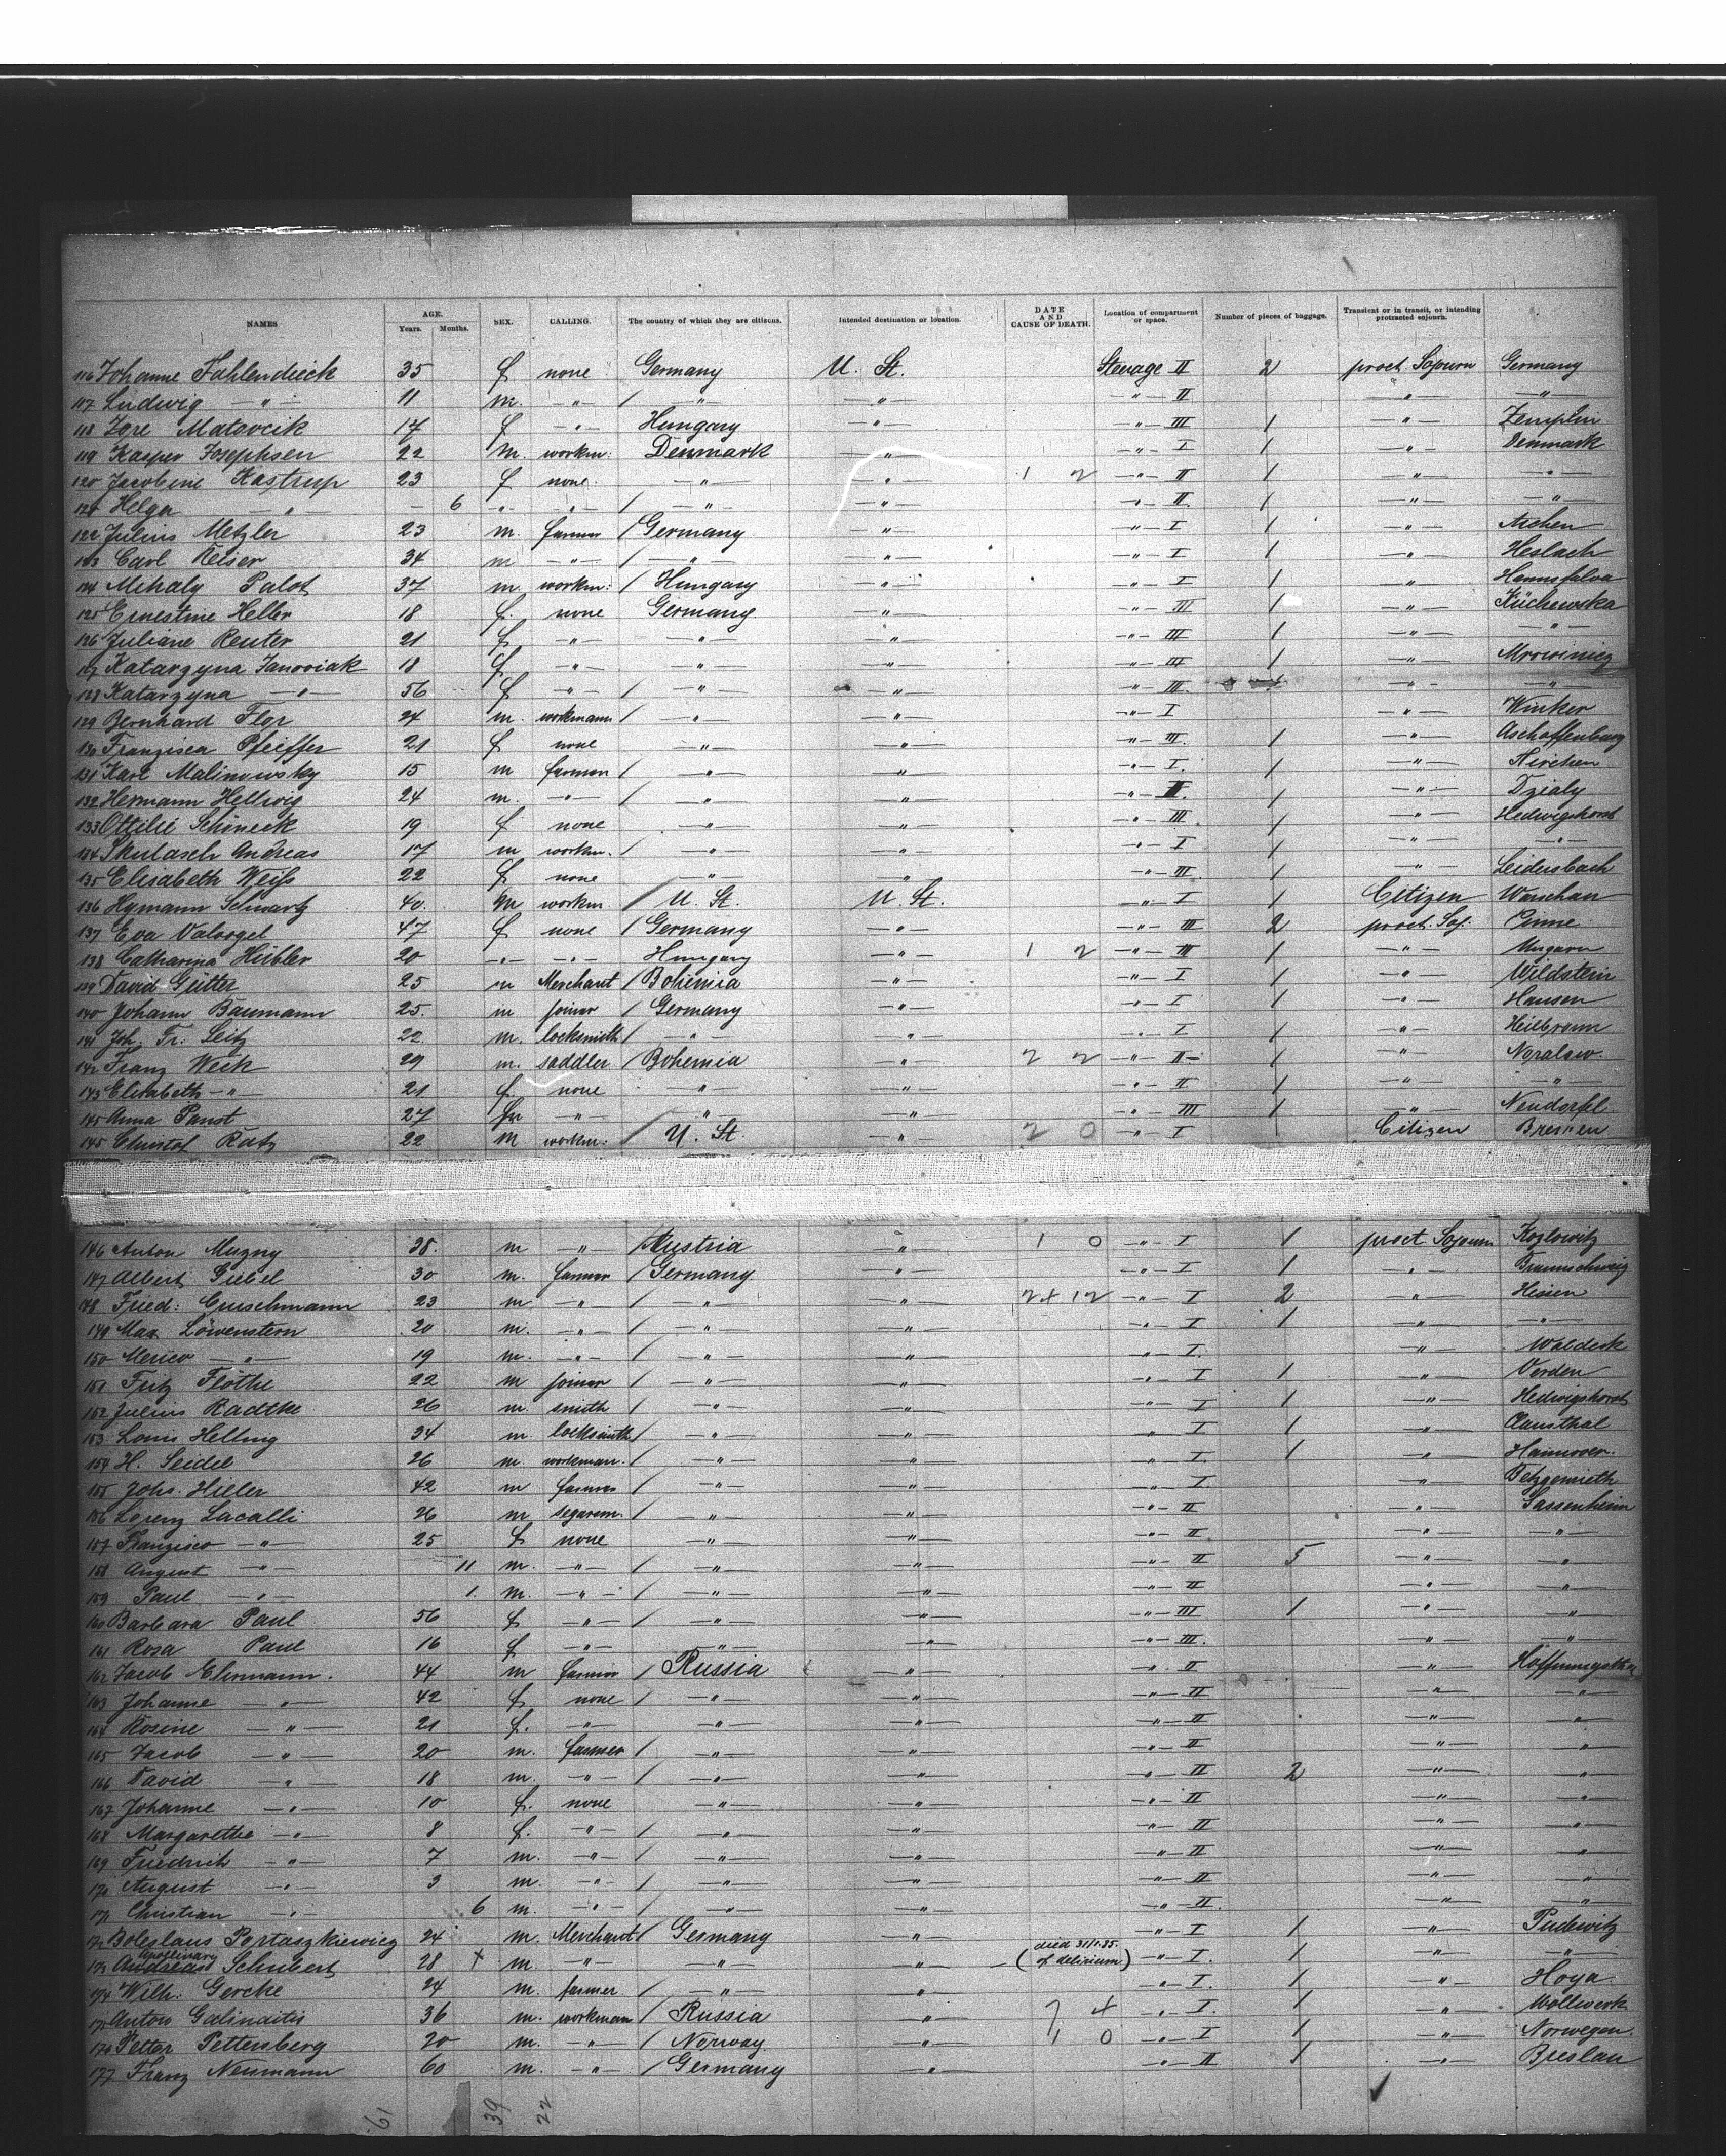 NAMES AGE. Years. Months. SEX. CALLING. The country of which they are citizens. Intended destination or location. DATE AND CAUSE OF DEATH. Location of compartment or space. Number of pieces of baggage. Transient or in transit, or intending protracted sojourn.
116 Johanne Fahlendieck 35 f none Germany U. St. Steerage II 2 proct. Sojourn Germany
117 Ludwig —"— 11 m. —"— / —"— —"— —"— II —"— —"—
118 Zore Matovcik 17 f —"— Hungary —"— —"— III 1 —"— Zemplin
119 Kasper Josephsen 22 m. workm: Denmark —"— —"— I 1 —"— Denmark
120 Jacobine Kastrup 23 f none. —"— —"— 1 2 —"— II 1 —"— —"—
121 Helga —"— — 6 —"— —"— / —"— —"— —"— II. 1 —"— —"—
122 Julius Metzler 23 m. farmer / Germany —"— —"— I 1 —"— Aichen
123 Carl Reiser 34 m —"— / —"— —"— —"— I 1 —"— Heslach
124 Mihaly Palot 37 m. workm: / Hungary —"— —"— I 1 —"— Hannsfalva
125 Ernestine Heller 18 f. none Germany —"— —"— III 1 —"— Küchewska
126 Juliane Reuter 21 f —"— —"— —"— —"— III 1 —"— —"—
127 Katarzyna Janoviak 18 f —"— —"— —"— —"— III 1 —"—
128 Katarzyna —"— 56 f —"— / —"— —"— —"— III. —"— —"—
129 Bernhard Flor 24 m. workmann / —"— —"— —"— I —"— Winker
130 Franzisca Pfeiffer 21 f none —"— —"— —"— III. 1 —"— Aschaffenburg
131 Karl Malinowsky 15 m farmer / —"— —"— —"— I. 1 —"— Kirchen
132 Hermann Hellwig 24 m. —"— / —"— —"— —"— II. 1 —"— Dzialy
133 Ottilie Schöneck 19 f none —"— —"— —"— III. 1 —"— Hedwigshorst
134 Skulasch Andreas 17 m workm. / —"— —"— —"— I 1 —"— —"—
135 Elisabeth Weiss 22 f none —"— —"— —"— III 1 —"— Leidersbach
136 Hymann Schwartz 40. m workm / U. St. U. St. —"— I 1 Citizen Warschau
137 Eva Valvogel 47 f none / Germany —"— —"— III 2 proct. Soj: Pinne
138 Catharina Hübler 20 —"— —"— Hungary —"— 1 2 —"— III 1 —"— Ungarn
139 David Gütter 25 m Merchant / Bohemia —"— —"— I 1 —"— Wildstein
140 Johann Baumann 25. m joiner / Germany —"— —"— I 1 —"— Hausen
141 Joh. Fr. Seitz 22 m. locksmith / —"— —"— —"— I 1 —"— Heilbronn
142 Franz Weik 29 m. saddler / Bohemia —"— 2 2 —"— II — 1 —"—
143 Elisabeth —"— 21 f. none —"— —"— —"— II 1 —"— —"—
145 Anna Panst 27 —"— —"— —"— —"— III 1 —"— Neudorfel
145 Christof Rutz 22 m workm: / U. St. —"— 2 0 —"— I 1 Citizen Bremen
146 Anton Muzny 38. m —"— / Austria —"— 1 0 —"— I 1 proct Sojourn Kozlowitz
147 Albert Giebel 30 m. farmer / Germany —"— —"— I 1 —"— Braunschweig
148 Fried: Cuschmann 23 m —"— / —"— —"— 2 x 12 —"— I 2 —"— Hessen
149 Max Löwenstern 20 m. —"— / —"— —"— —"— I 1 —"— —"—
150 Merico —"— 19 m. —"— / —"— —"— —"— I. —"— Waldeck
151 Fritz Flöthe 22 m joiner / —"— —"— —"— I 1 —"— Verden
152 Julius Radtke 26 m. smith / —"— —"— —"— I 1 —"— Hedwigshorst
153 Louis Helling 34 m. locksmith / —"— —"— —"— I 1 —"— Clausthal
154 H. Seidel 26 m. workman. / —"— —"— —"— I. 1 —"— Hannover.
155 Johs. Hieler 42 m farmer / —"— —"— —"— I. —"—
156 Lorenz Lacalli 26 m segarem. / —"— —"— —"— II —"— Sassenheim
157 Franzisco —"— 25 f. none —"— —"— —"— II —"— —"—
158 August —"— 11 m. —"— / —"— —"— —"— II 5 —"— —"—
159 Paul —"— 1. m. —"— / —"— —"— —"— II —"— —"—
160 Barbara Paul 56 f —"— / —"— —"— —"— III 1 —"— —"—
161 Rosa Paul 16 f —"— —"— —"— —"— III. —"— —"—
162 Jacob Ehrmann. 44 m farmer / Russia —"— —"— II —"— Hoffnungsthal
163 Johanne —"— 42 f. none / —"— —"— —"— II —"— —"—
164 Rosine —"— 21 f. —"— —"— —"— —"— II —"— —"—
165 Jacob —"— 20 m. farmer / —"— —"— —"— II —"— —"—
166 David —"— 18 m. —"— / —"— —"— —"— II 2 —"— —"—
167 Johanne —"— 10 f. none —"— —"— —"— II —"— —"—
168 Margarethe —"— 8 f. —"— / —"— —"— —"— II —"— —"—
169 Friedrich —"— 7 m. —"— / —"— —"— —"— II —"— —"—
170 August —"— 3 m. —"— / —"— —"— —"— II —"— —"—
171 Christian —"— 6 m. —"— / —"— —"— —"— II. —"— —"—
172 Boleslaus Portaszkiewicz 24 m. Merchant / Germany —"— —"— I 1 —"— Pudewitz
173 Apollinary Andreas Schubert 28 + m. —"— —"— —"— (died 31/1.85. of delirium) —"— I. 1 —"— —"—
174 Wilh. Gercke 24 m. farmer / —"— —"— —"— I. 1 —"— Hoya
175 Anton Galinaitis 36 m. workman / Russia —"— 7 4 —"— I. 1 —"— Wollwerk
176 Petter Pettersberg 20 m. —"— / Norway —"— 1 0 —"— I 1 —"— Norwegen.
177 Franz Neumann 60 m. —"— / Germany —"— —"— II 1 —"— Breslau
61 39 22